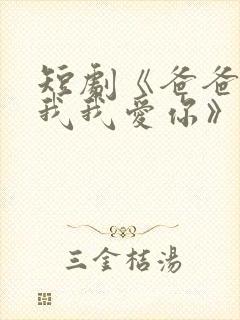 短劇《爸爸
我我愛你》
三金桔湯